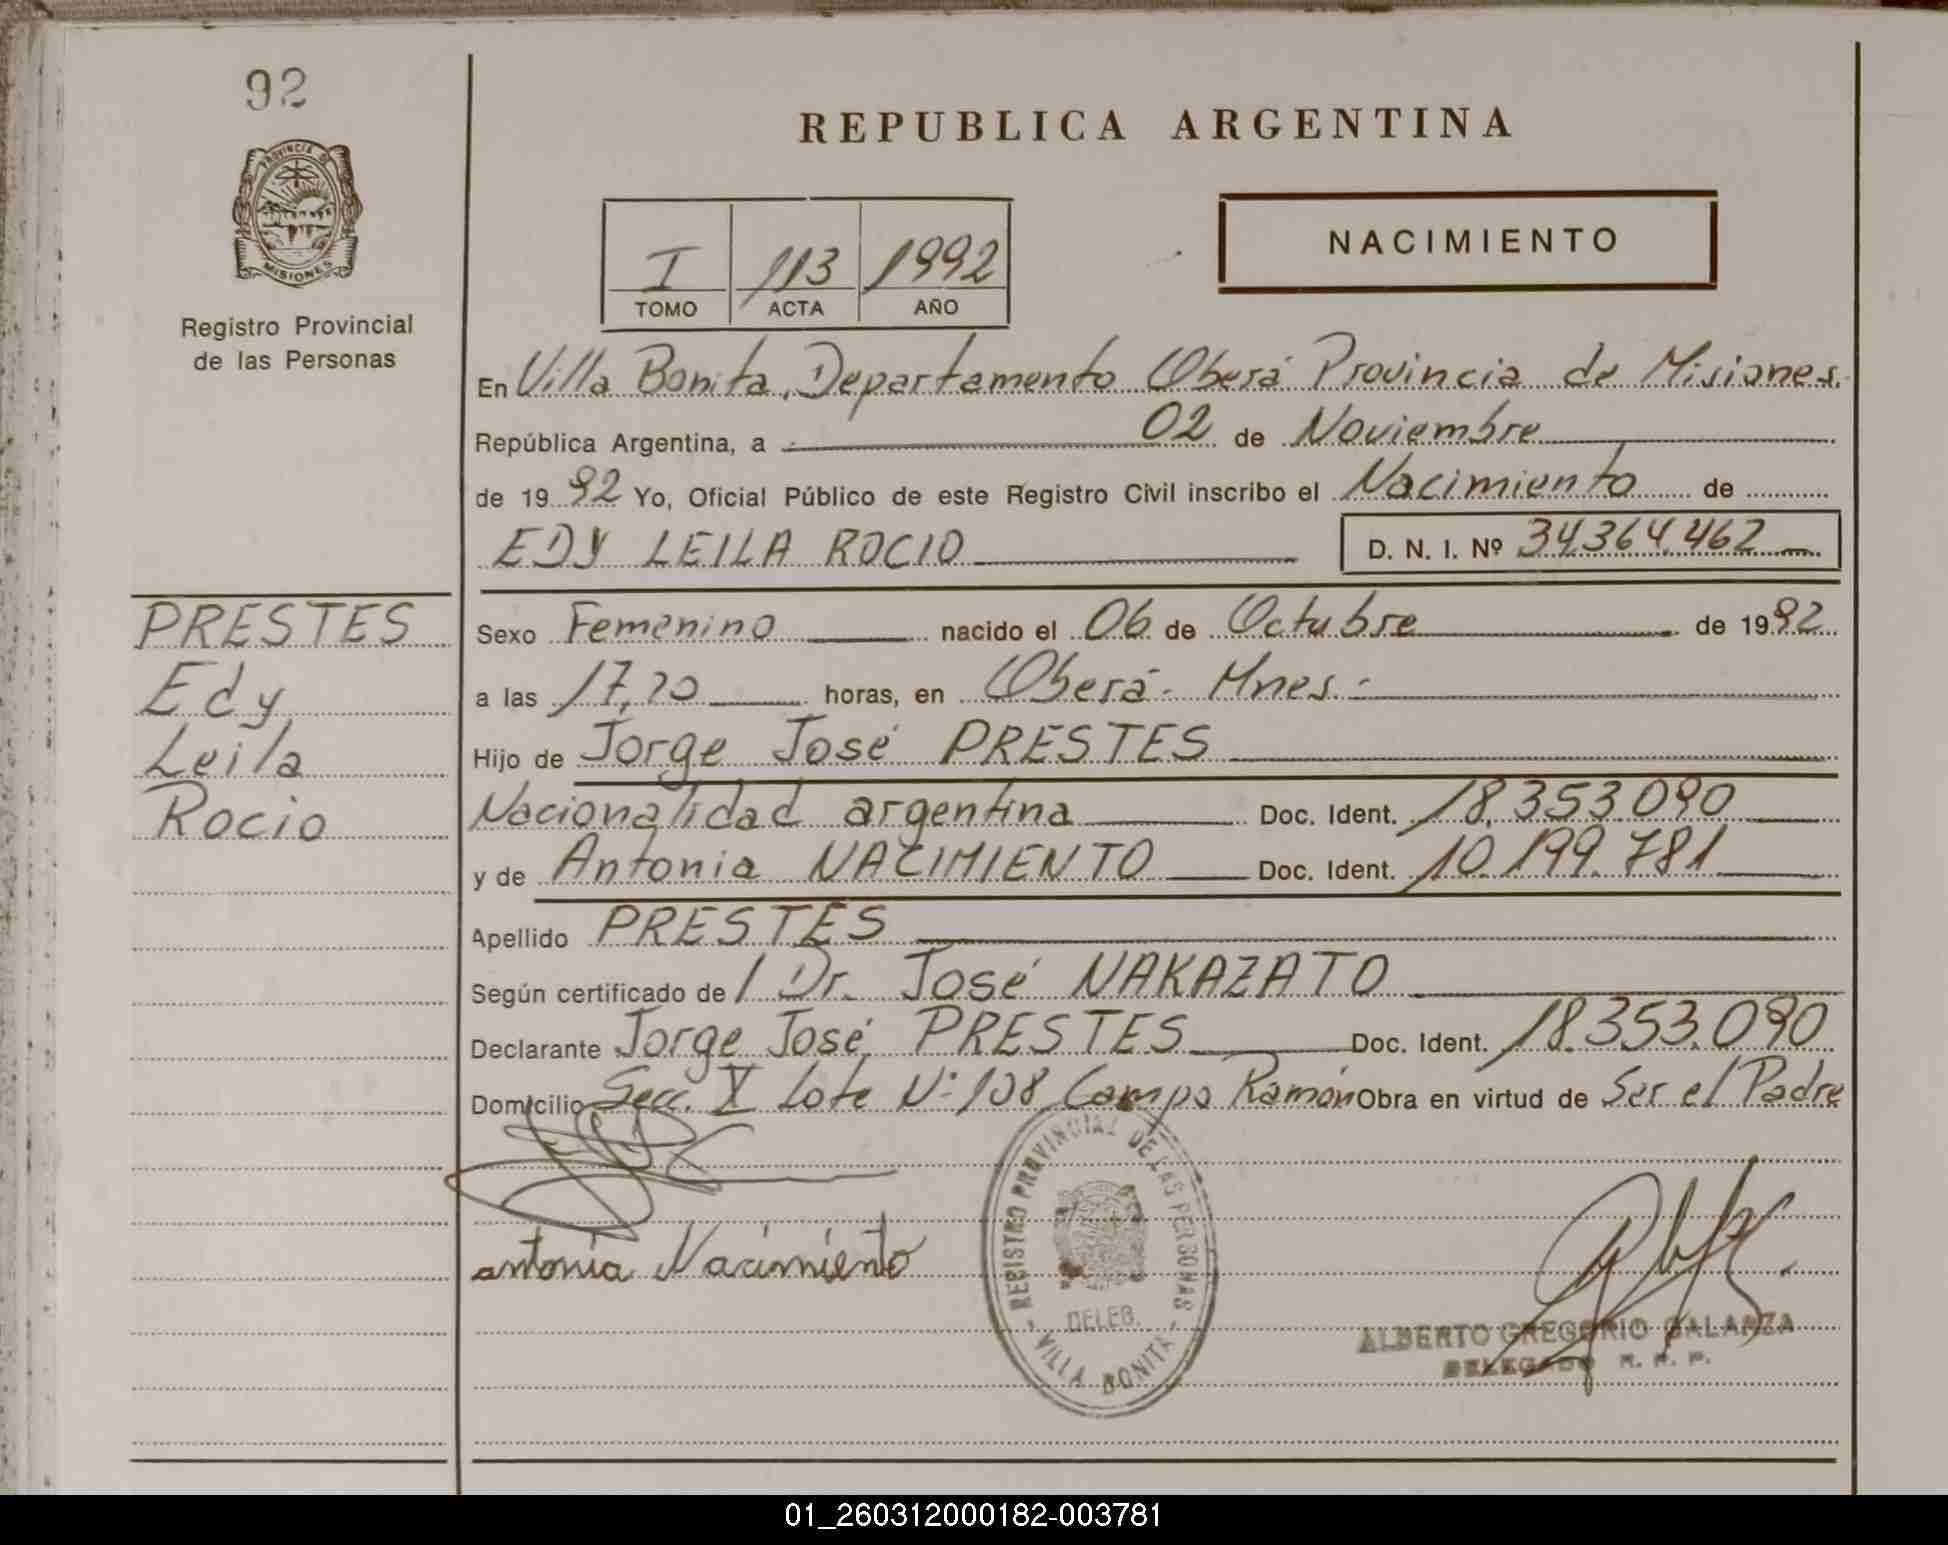 92
PROVINCIA DE
MISIONES
Registro Provincial
de las Personas
REPUBLICA ARGENTINA
I 113 1992
TOMO ACTA AÑO
NACIMIENTO
En Villa Bonita, Departamento Oberá Provincia de Misiones.
República Argentina, a 02 de Noviembre
de 19 92 Yo, Oficial Público de este Registro Civil inscribo el Nacimiento de
EDY LEILA ROCIO D. N. I. Nº 34.364.462
PRESTES
Edy
Leila
Rocio
Sexo Femenino nacido el 06 de Octubre de 19 92
a las 17,20 horas, en Oberá - Mnes.-
Hijo de Jorge José PRESTES
Nacionalidad argentina Doc. Ident. 18.353.090
y de Antonia NACIMIENTO Doc. Ident. 10.199.781
Apellido PRESTES
Según certificado de / Dr. José NAKAZATO
Declarante Jorge José PRESTES Doc. Ident. 18.353.090
Domicilio Secc. V Lote Nº 108 Campo Ramón Obra en virtud de Ser el Padre
antonia Nacimiento
- REGISTRO PROVINCIAL DE LAS PERSONAS -
DELEG.
VILLA BONITA
ALBERTO GREGORIO GALARZA
DELEGADO R. P. P.
01_260312000182-003781